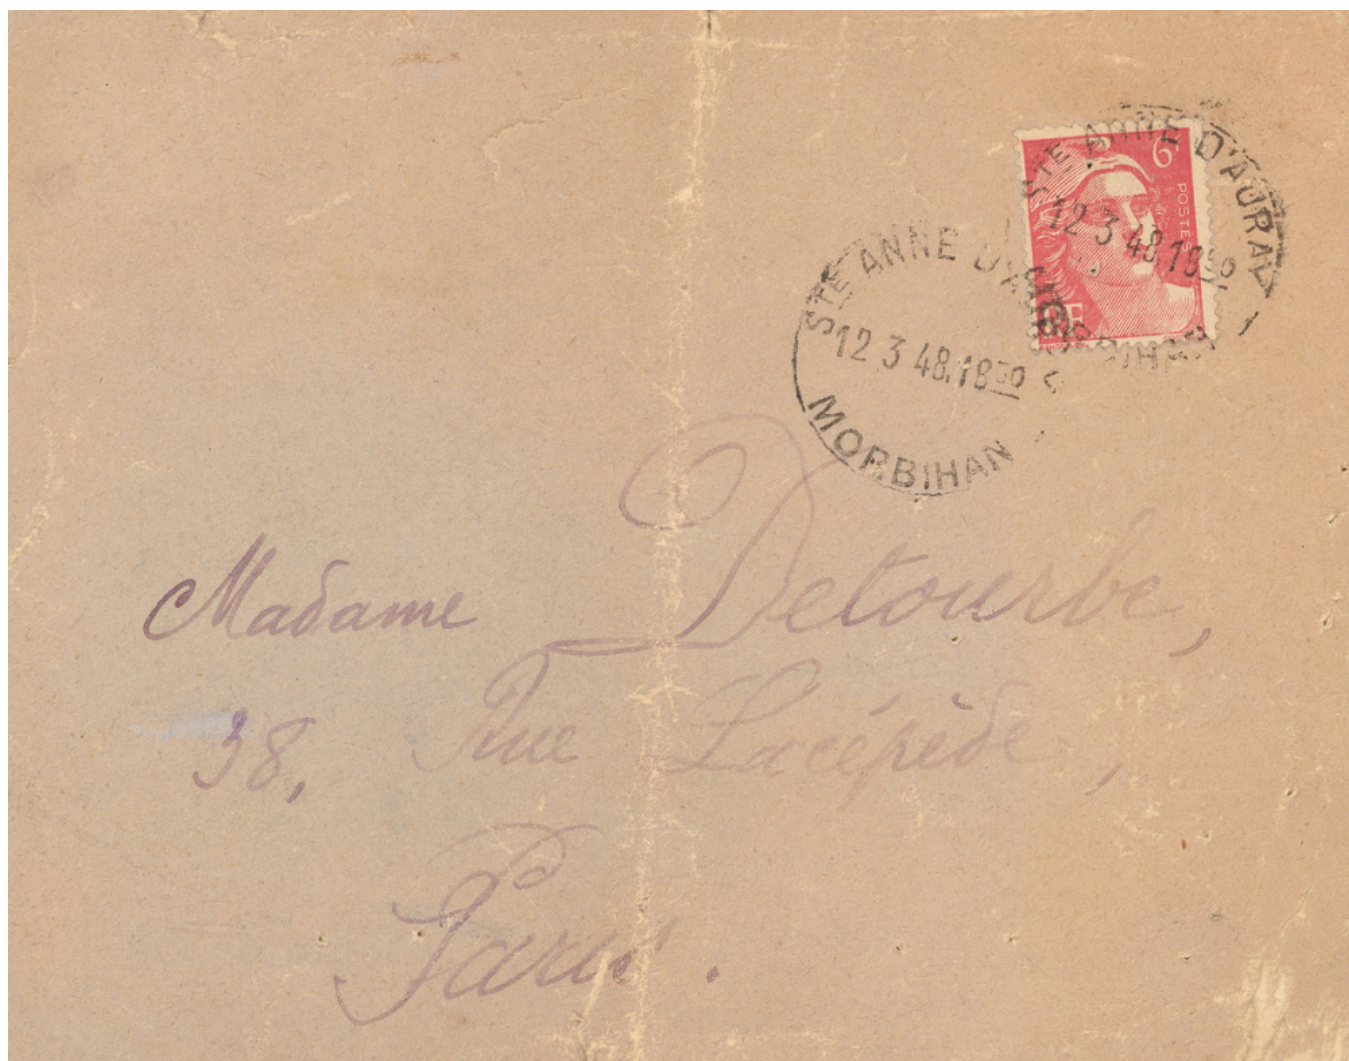 6F
POSTES
RF
STE ANNE D'AURAY
12 3 48.18 30
MORBIHAN
STE ANNE D'AURAY
12 3 48.18 30
MORBIHAN
Madame Detourbe,
38, Rue Lacépède,
Paris.